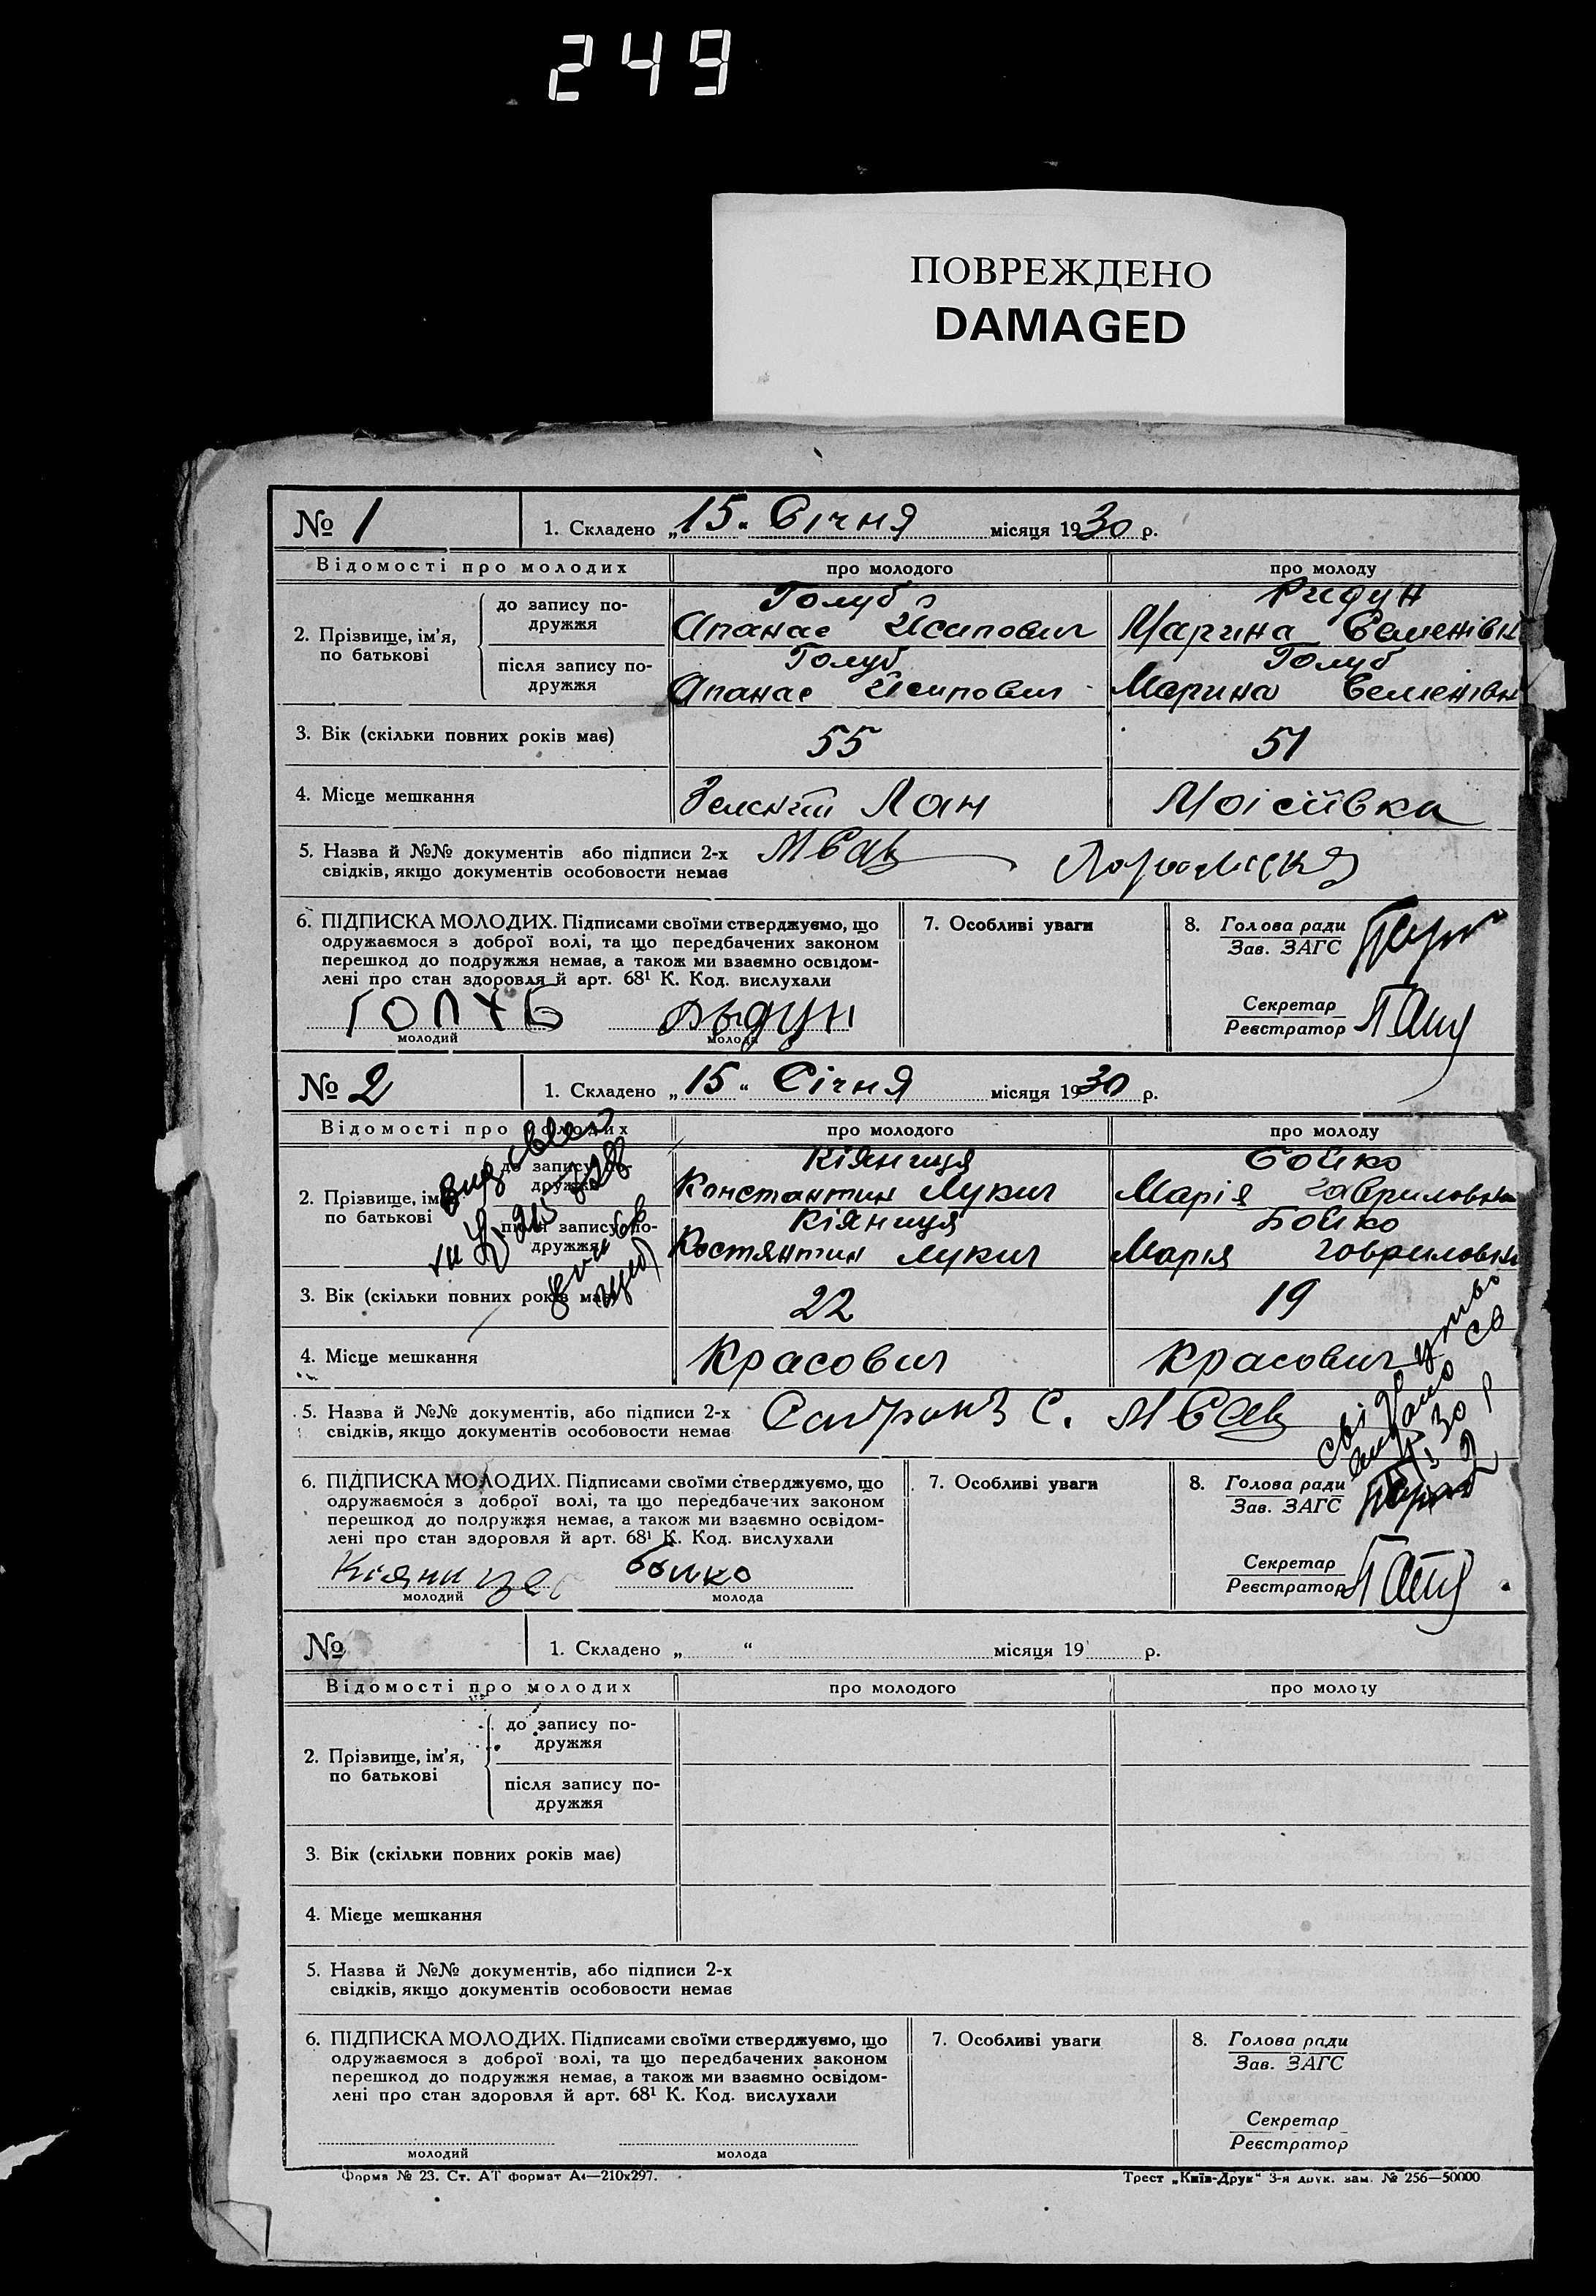 249
ПОВРЕЖДЕНО
DAMAGED
№ 1
1. Складено „15“ Січня місяця 1930 р.
Відомості про молодих
про молодого
про молоду
2. Прізвище, ім'я, по батькові
до запису подружжя
Голуб
Апанас Йсипович
Ридун
Марина Семенівн
після запису подружжя
Голуб
Апанас Йсипович
Голуб
Марина Семенівн
3. Вік (скільки повних років має)
55
51
4. Місце мешкання
Зелений Лан
Моісіївка
5. Назва й №№ документів або підписи 2-х
свідків, якщо документів особовости немає
6. ПІДПИСКА МОЛОДИХ. Підписами своїми стверджуємо, що
одружаємося з доброї волі, та що передбачених законом
перешкод до подружжя немає, а також ми взаємно освідом-
лені про стан здоровля й арт. 68¹ К. Код. вислухали
Голуб
молодий
молода
7. Особливі уваги
8. Голова ради
Зав. ЗАГС
Секретар
Реєстратор
№ 2
1. Складено „15“ Січня місяця 1930 р.
Відомості про молодих
про молодого
про молоду
2. Прізвище, ім
по батькові
до запису по-
дружжя
Кіяниця
Константин Лукич
Бойко
Марія Гавриловна
після запису по-
дружжя
Кіяниця
Костянтин Лукич
Бойко
Марія Говриловна
3. Вік (скільки повних років має)
22
19
4. Місце мешкання
Красович
Красович
5. Назва й №№ документів, або підписи 2-х
свідків, якщо документів особовости немає
6. ПІДПИСКА МОЛОДИХ. Підписами своїми стверджуємо, що
одружаємося з доброї волі, та що передбачених законом
перешкод до подружжя немає, а також ми взаємно освідом-
лені про стан здоровля й арт. 68¹ К. Код. вислухали
Кіяница
молодий
Бойко
молода
7. Особливі уваги
8. Голова ради
Зав. ЗАГС
Секретар
Реєстратор
№
1. Складено „ “ місяця 19 р.
Відомості про молодих
про молодого
про молоду
2. Прізвище, ім'я,
по батькові
до запису по-
дружжя
після запису по-
дружжя
3. Вік (скільки повних років має)
4. Місце мешкання
5. Назва й №№ документів, або підписи 2-х
свідків, якщо документів особовости немає
6. ПІДПИСКА МОЛОДИХ. Підписами своїми стверджуємо, що
одружаємося з доброї волі, та що передбачених законом
перешкод до подружжя немає, а також ми взаємно освідом-
лені про стан здоровля й арт. 68¹ К. Код. вислухали
молодий
молода
7. Особливі уваги
8. Голова ради
Зав. ЗАГС
Секретар
Реєстратор
Форма № 23. Ст. АТ формат А4—210х297.
Трест „Київ-Друк“ 3-я друк. зам. № 256—50000